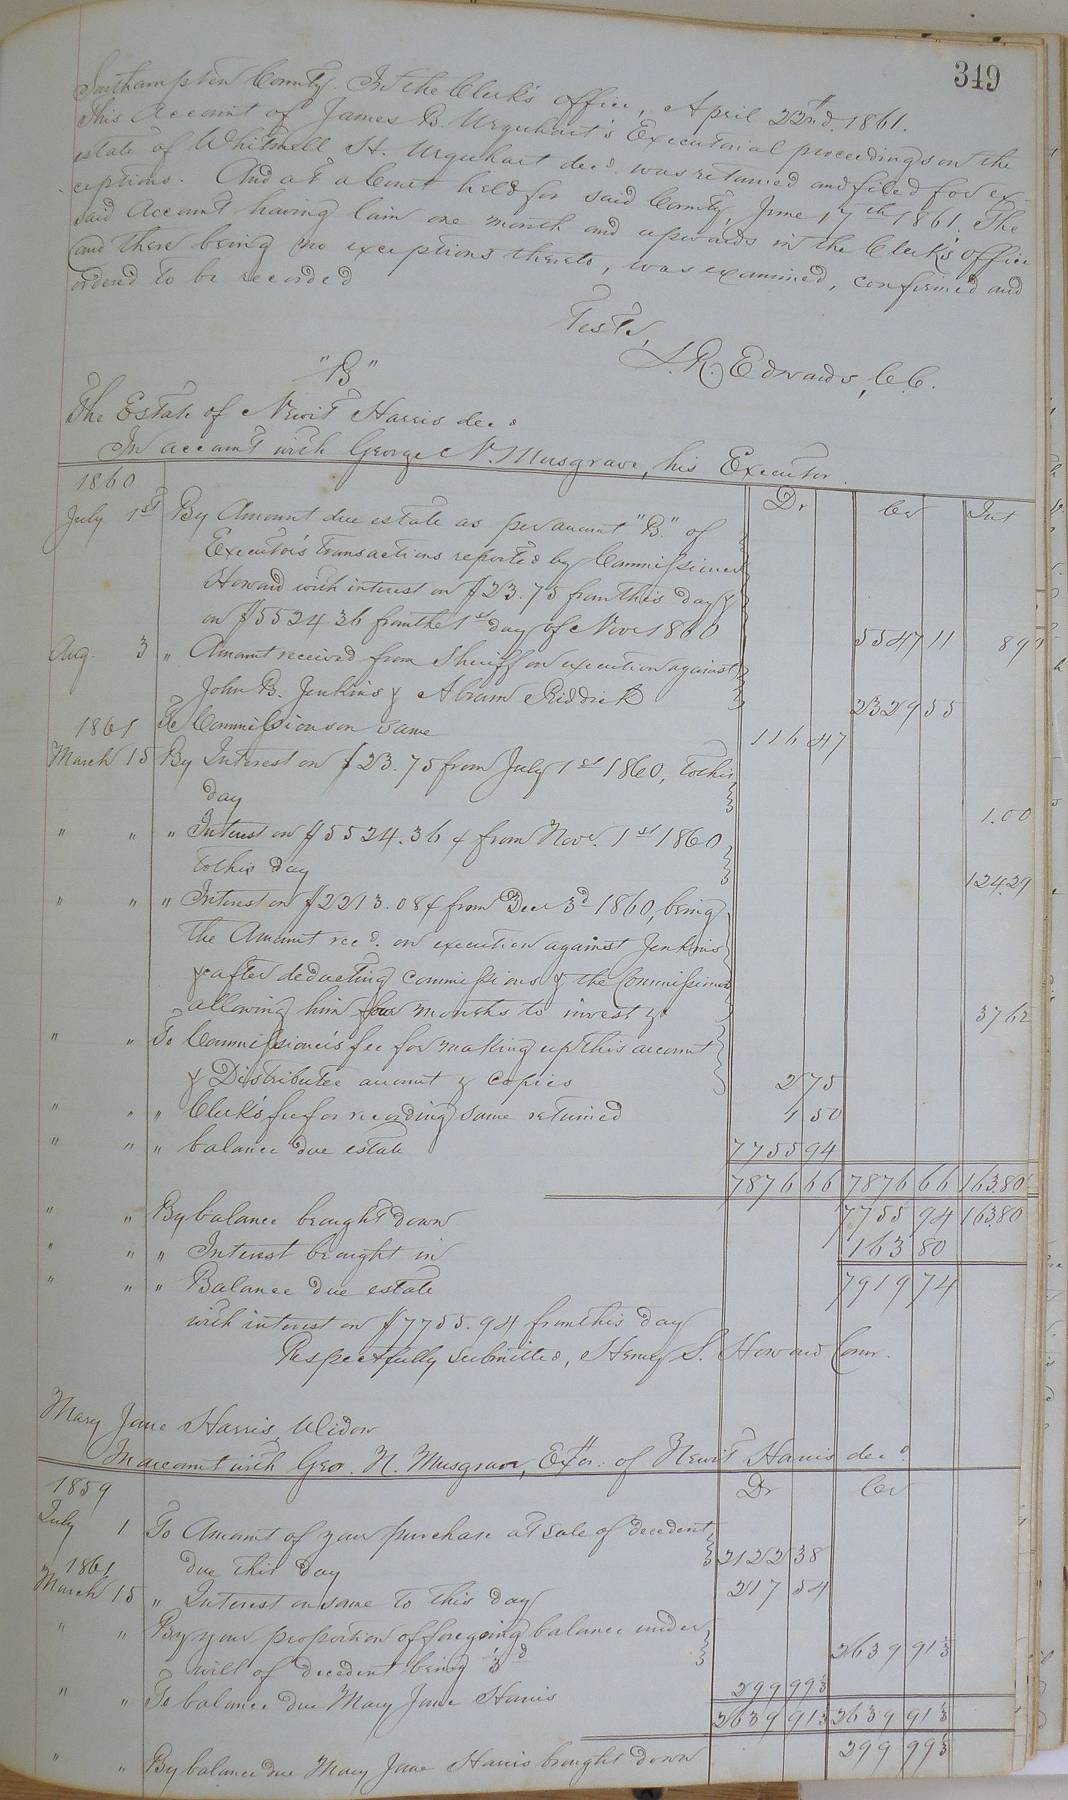 349
Southampton County. In the Clerk's office, April 22nd. 1861.
This Account of James B. Urquhart's Executorial proceedings on the
estate of Whitmell H. Urquhart decd. was returned and filed for ex-
ceptions. And at a Court held for said County, June 17th 1861. The
said Account having lain one month and upwards in the Clerk's office
and there being no exceptions thereto, was examined, confirmed and
ordered to be recorded
Teste,
L. R. Edwards, C.C.
"B"
The Estate of Newit Harris decd
In account with George N. Musgrave, his Executor.
1860 Dr Cr Int
July 1st By Amount due estate as per account "B." of
Executor's transactions reported by Commissioner
Howard with interest on $23.75 from this day &
on $5524 36 from the 1st day of Nov 1860 5547 11 89
Aug. 3 " Amount received from Sheriff on execution against
John B. Jenkins & Abram Riddick 2329 55
To Commission on same 116 47
1861
March 15 By Interest on $23.75 from July 1st 1860, to this
day 1.00
" " " Interest on $5524.36 ¢ from Nov. 1st 1860
to this day 124.29
" " " Interest on $2213.08 ¢ from Dec 3d 1860, being
the Amount recd. on execution against Jenkins
& after deducting commissions & the Commissioner
allowing him four months to invest &c 37 62
" " To Commissioner's fee for making up this account
& Distributee account & copies 2 75
" " " Clerk's fee for recording same returned 1 50
" " " balance due estate 7755 94
7876 66 7876 66 163.80
" " By balance brought down 7755 94 163.80
" " " Interest brought in 163 80
" " " Balance due estate 7919 74
with interest on $7755.94 from this day
Respectfully submitted, Henry S. Howard Comr.
Mary Jane Harris, Widow
In account with Geo. N. Musgrave, Exor. of Newit Harris decd.
1859 Dr Cr
July 1 To Amount of your purchase at sale of decedent,
due this day 2122 38
1861
March 15 " Interest on same to this day 217 54
" " By your proportion of foregoing balance under
will of decedent being 1/3d 2639 91 1/3
" " To balance due Mary Jane Harris 299 99 1/3
2639 91 1/3 2639 91 1/3
" " By balance due Mary Jane Harris brought down 299 99 1/3